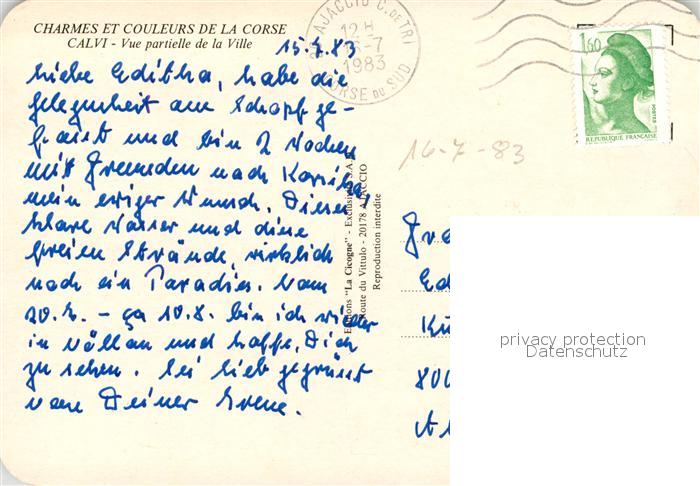 CHARMES ET COULEURS DE LA CORSE
CALVI - Vue partielle de la Ville
15.7.83
Liebe Editha, habe die
Gelegenheit am Schopf ge-
fasst und bin 2 Wochen
mit Freunden nach Korsika,
mein ewiger Wunsch. Dieses
klare Wasser und diese
freien Strände, wirklich
noch ein Paradies. Vom
20.7. - ca 10.8. bin ich wieder
in Völlan und hoffe, Dich
zu sehen. Sei lieb gegrüsst
von Deiner Irene.
AJACCIO C. DE TRI
12 H
6-7
1983
CORSE DU SUD
1,60
POSTES
REPUBLIQUE FRANÇAISE
16-7-83
Editions "La Cicogne" - Exclusivité S.A.
Route du Vittulo - 20178 AJACCIO
Reproduction interdite
Fra
Ed
Kü
800
privacy protection
Datenschutz